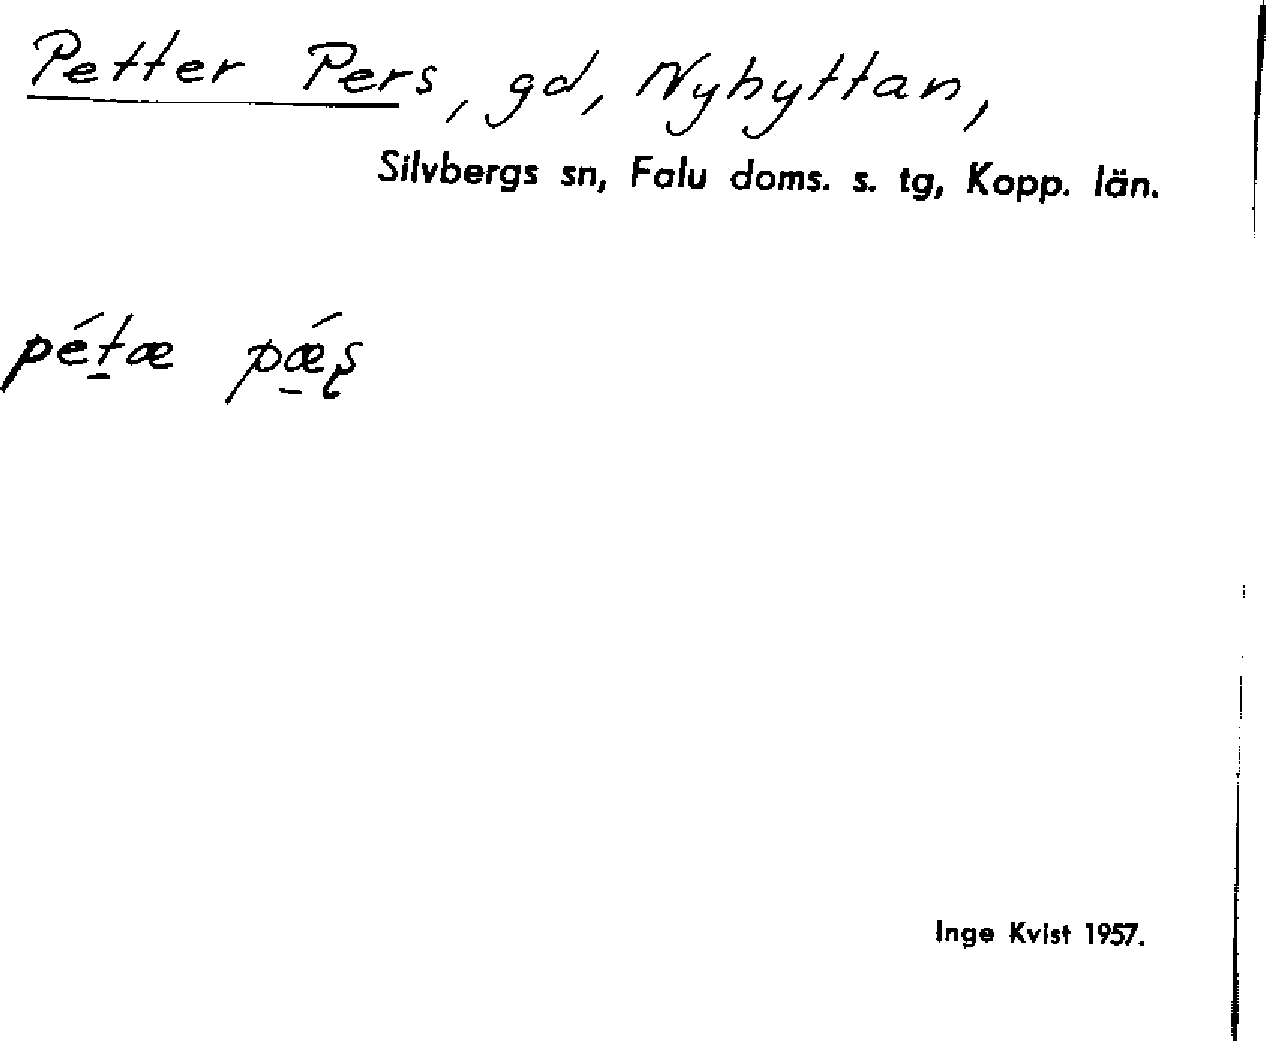 Petter Pers, gd, Nyhyttan,
Silvbergs sn, Falu doms. s. tg, Kopp. län.
pét̲æ pǽ̲ʂ
Inge Kvist 1957.